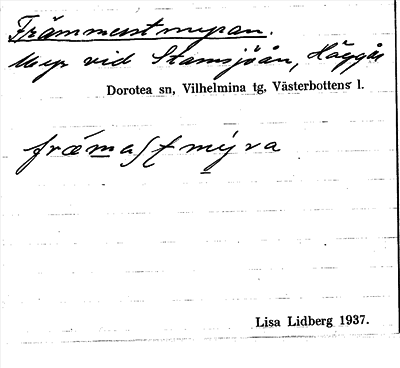 Främmestmyran.
Myr vid Stamsjöån, Häggås
Dorotea sn, Vilhelmina tg, Västerbottens l.
fræmast mýra
Lisa Lidberg 1937.